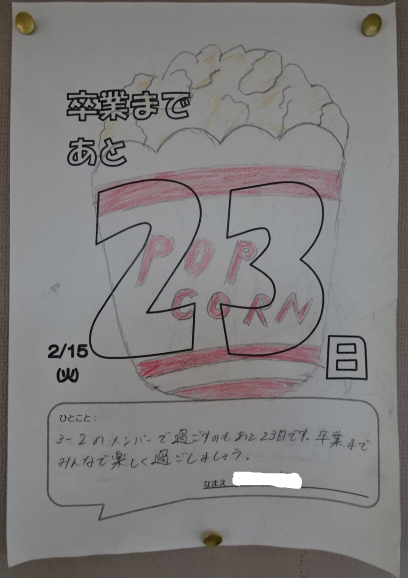 卒業まで
あと
23
POP
CORN
2/15
(火)
日
ひとこと:
3-2のメンバーで過ごすのもあと23日です。卒業まで
みんなで楽しく過ごしましょう。
なまえ